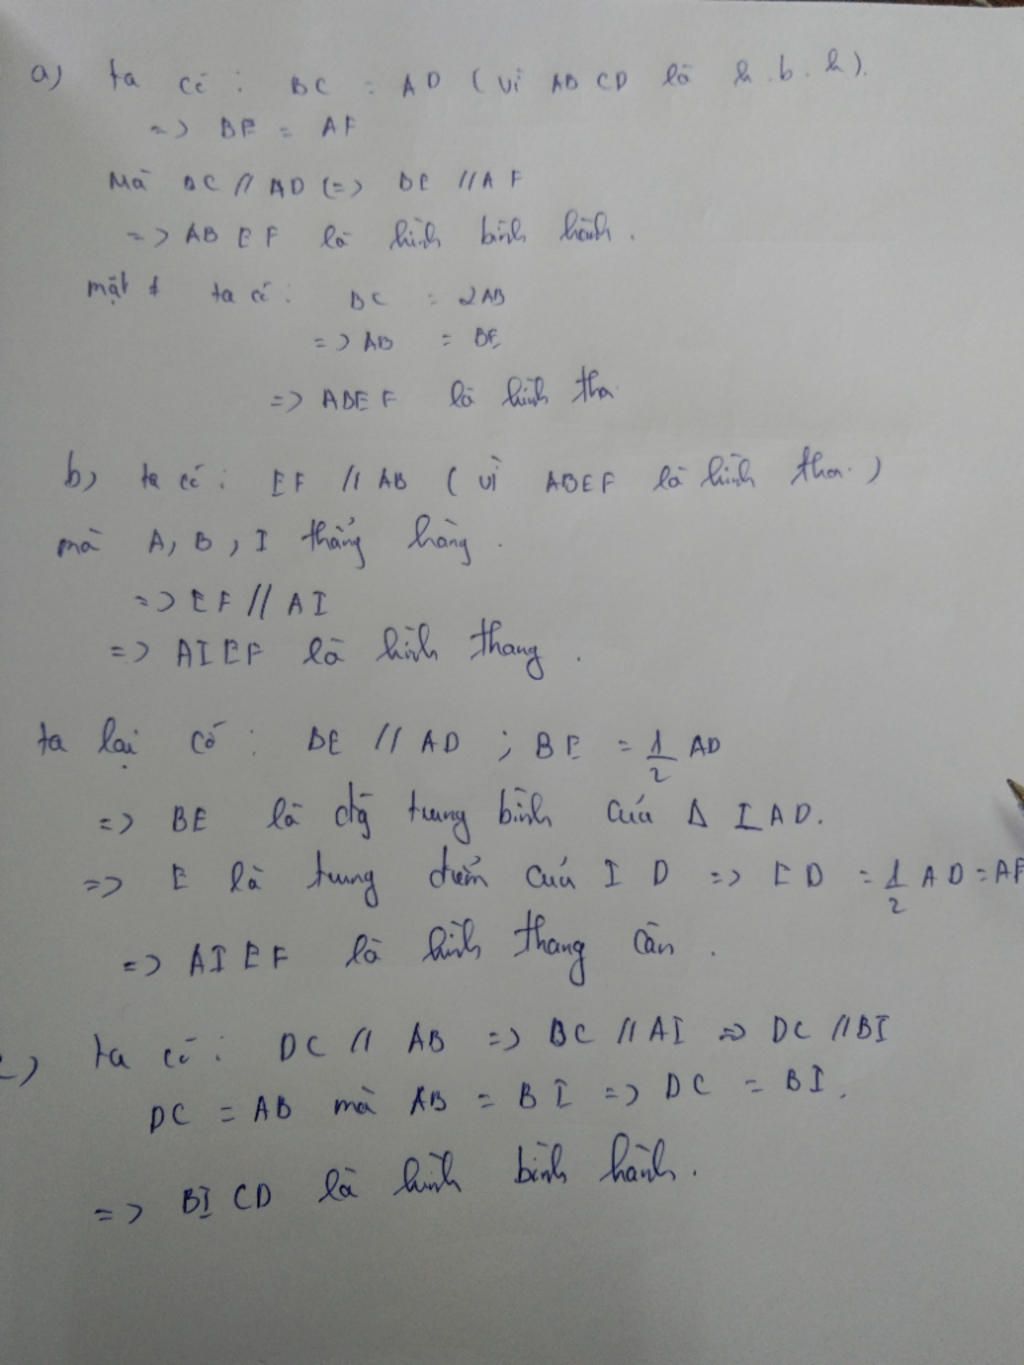 a) ta có : BC = AD ( vì ABCD là h.b.h ).
=> BE = AF
Mà BC // AD (=> BE // AF
=> ABEF là hình bình hành .
mặt ≠ ta có : BC = 2AB
=> AB = BE
=> ABEF là hình thoi
b) ta có : EF // AB ( vì ABEF là hình thoi )
mà A, B, I thẳng hàng .
=> EF // AI
=> AIEF là hình thang .
ta lại có : BE // AD ; BE = 1/2 AD
=> BE là đg trung bình của Δ IAD.
=> E là trung điểm của ID => ED = 1/2 AD = AF
=> AIEF là hình thang cân .
c) ta có : DC // AB => BC // AI => DC // BI
DC = AB mà AB = BI => DC = BI .
=> BICD là hình bình hành .